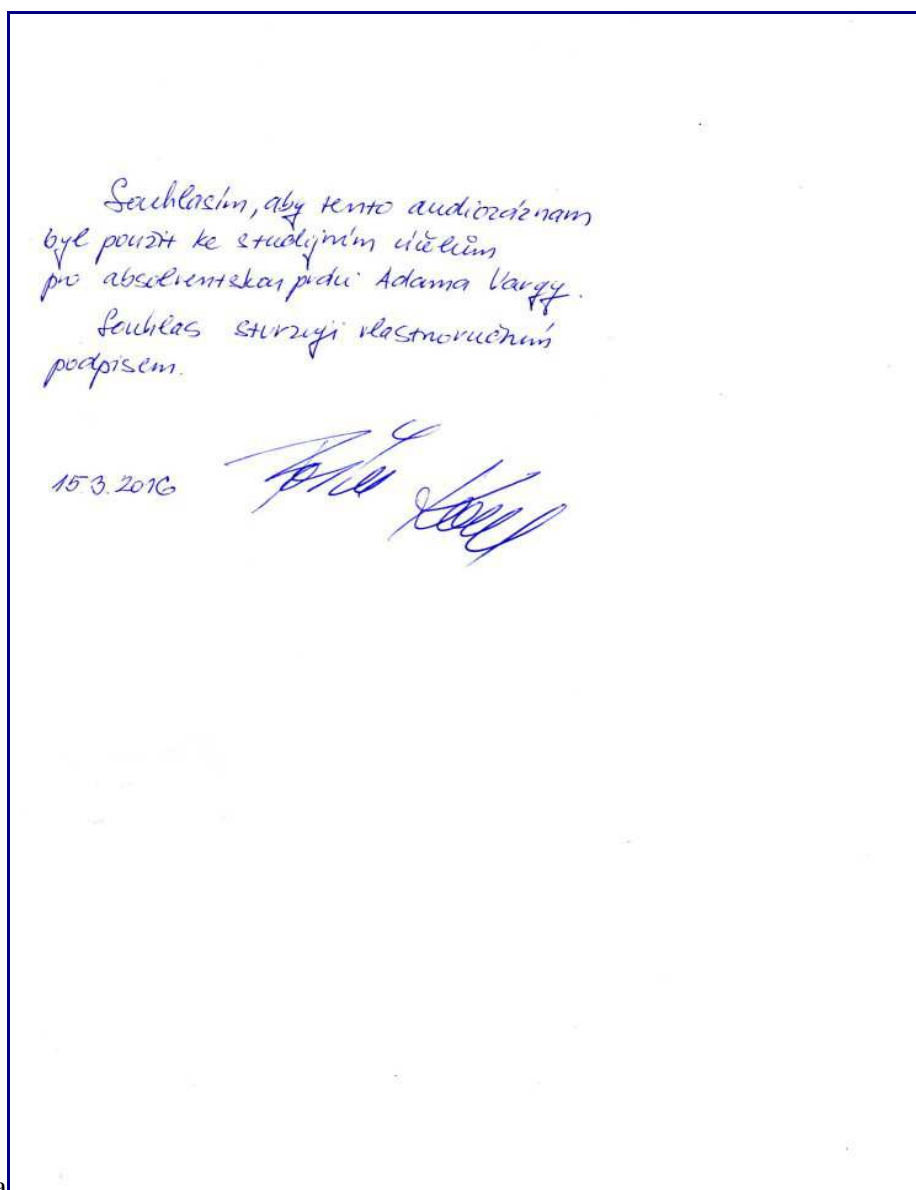 Souhlasím, aby tento audiozáznam
byl použit ke studijním účelům
pro absolventskou práci Adama Vargy.
Souhlas stvrzuji vlastnoručním
podpisem.
15.3.2016
a